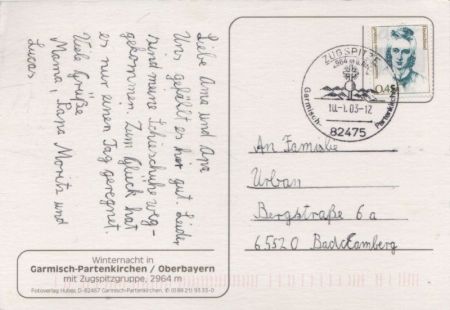 Liebe Ama und Apa
Uns gefällt es hier gut. Leider
sind meine Schischuhe weg-
gekommen. Zum Glück hat
es nur einen Tag geregnet.
Viele Grüße
Mama, Papa Moritz und
Lucas
ZUGSPITZE
2964 m ü.
Garmisch-Partenkirchen
10.-1.03-12
82475
Deutschland
0,45
An Familie
Urban
Bergstraße 6a
65520 Bad Camberg
Winternacht in
Garmisch-Partenkirchen / Oberbayern
mit Zugspitzgruppe, 2964 m
Fotoverlag Huber, D-82467 Garmisch-Partenkirchen, ✆ (0 88 21) 93 33-0